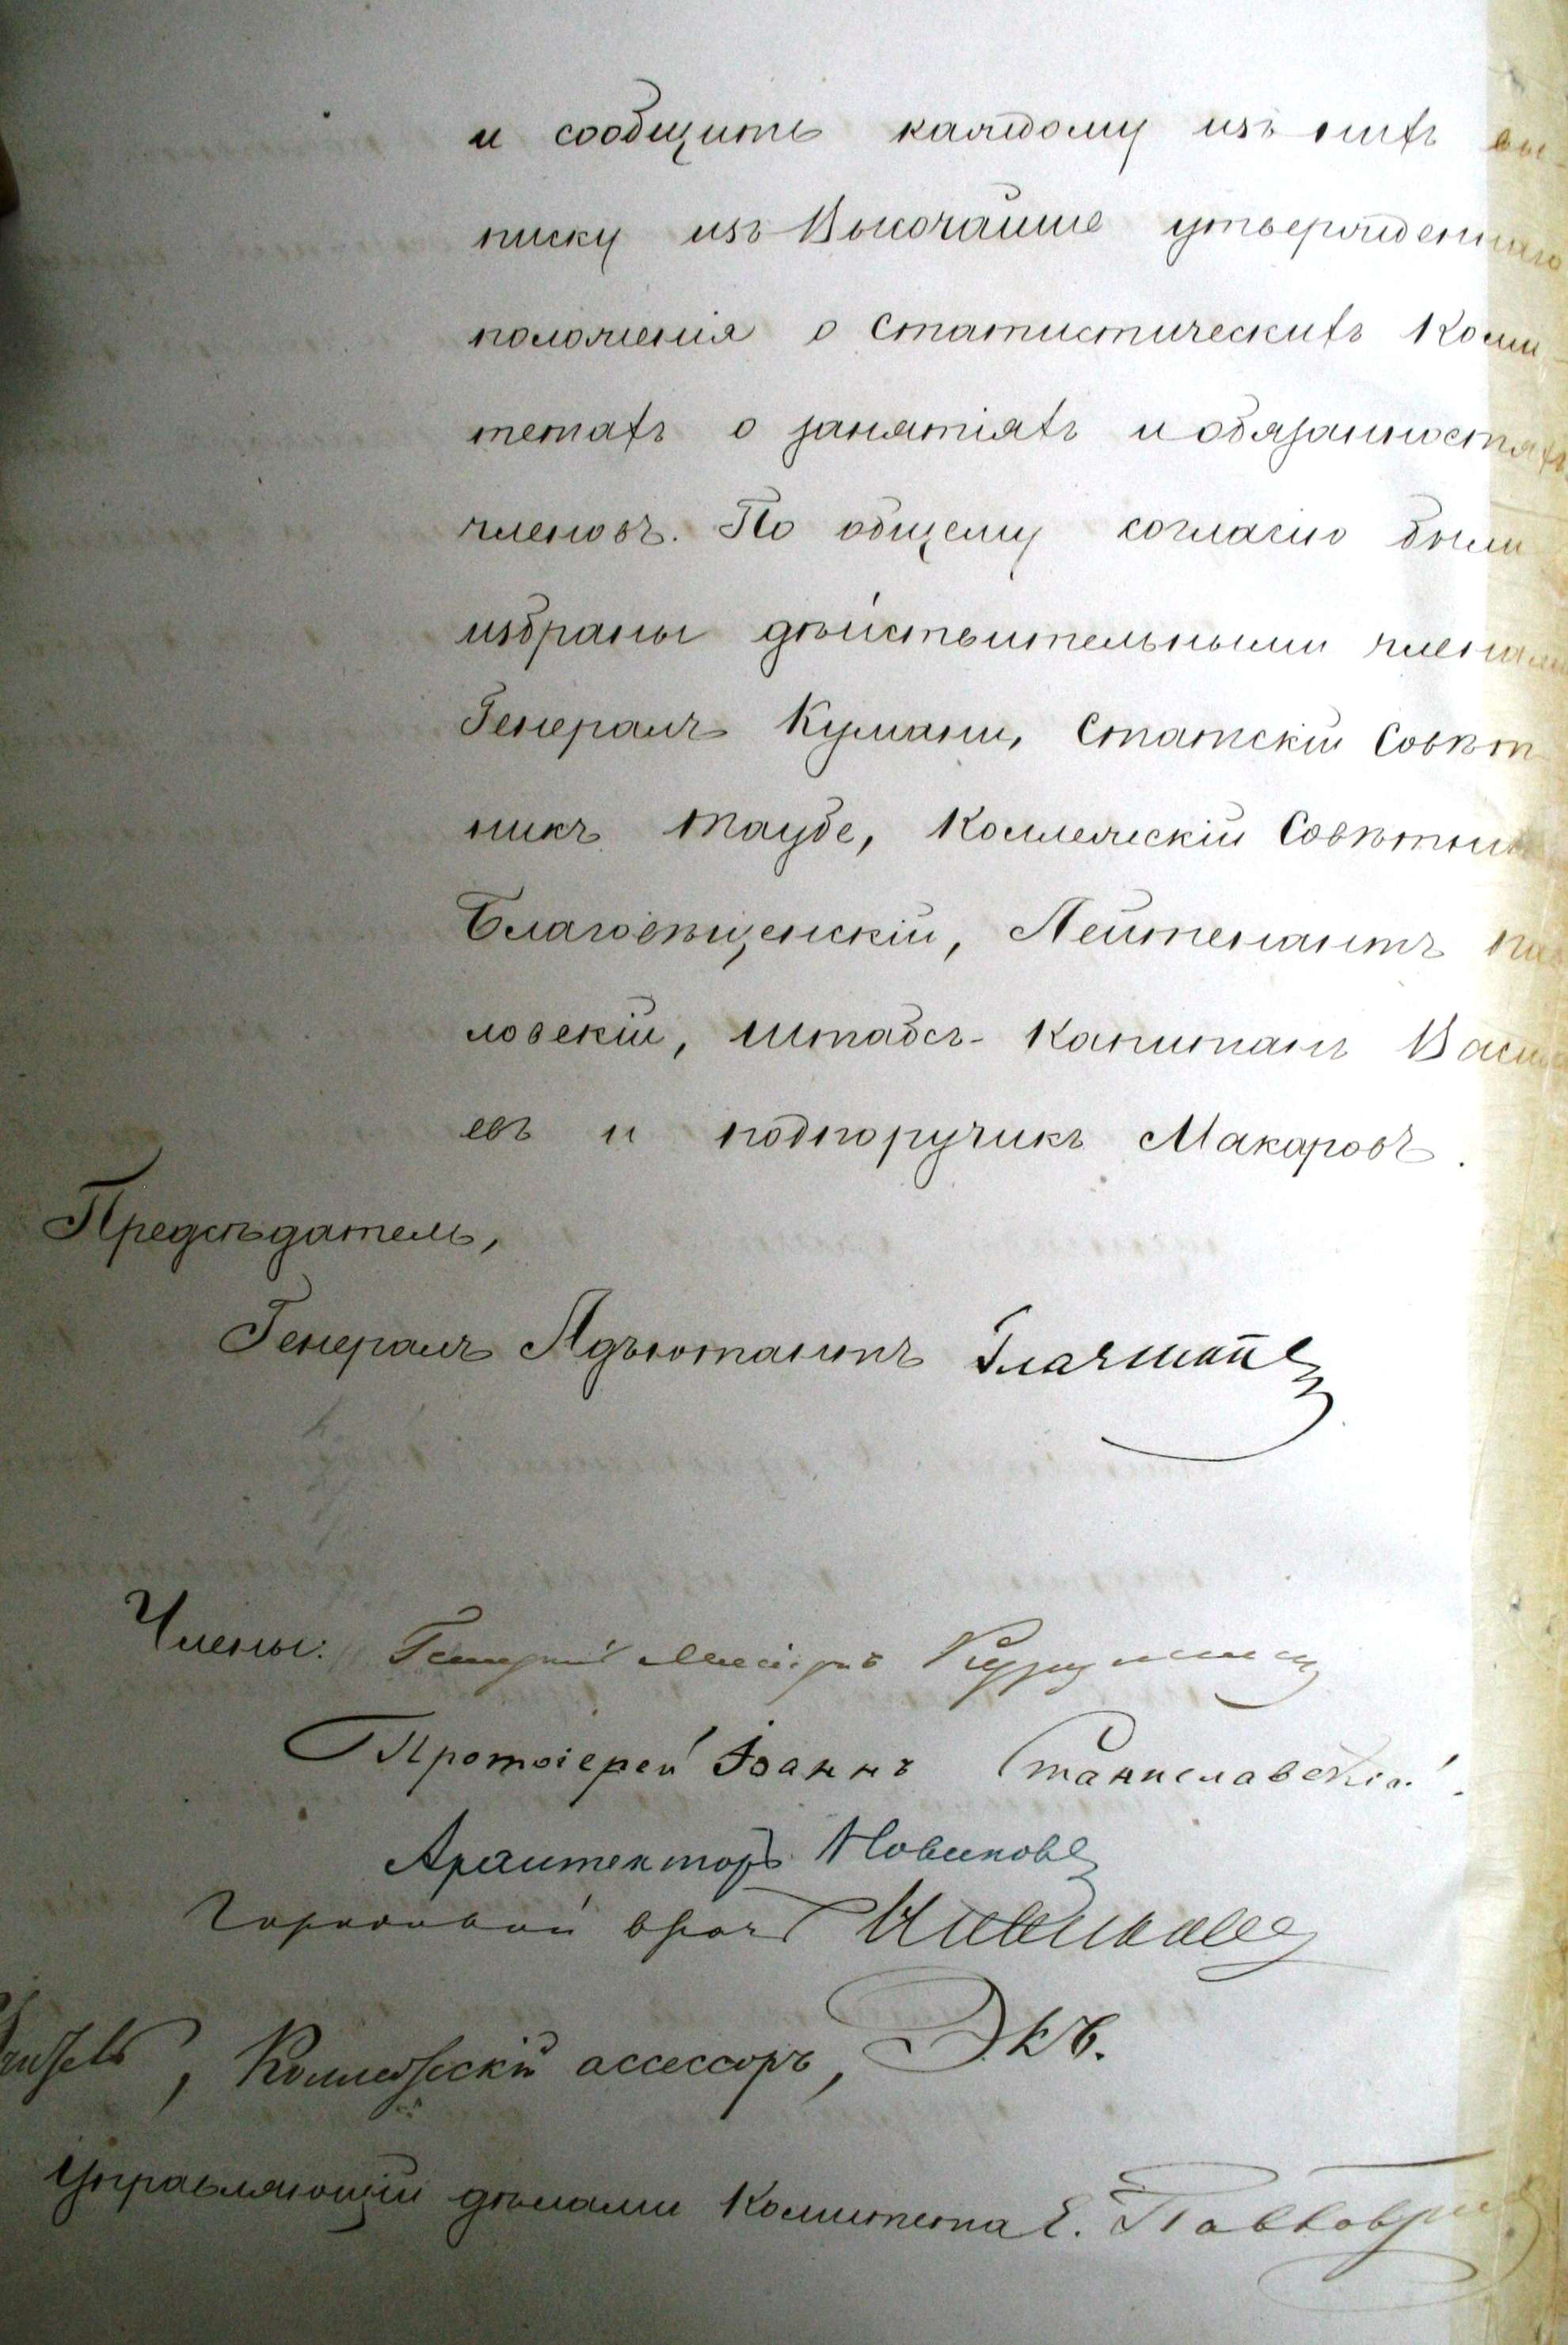 и сообщить каждому изъ нихъ вы-
писку изъ Высочайше утвержденнаго
положенія о Статистическихъ Коми-
тетахъ о занятіяхъ и обязанностяхъ
членовъ. По общему согласію были
избраны дѣйствительными членами
Генералъ Кумани, Статскій Совѣт-
никъ Таубе, Коллежскій Совѣтникъ
Благовѣщенскій, Лейтенантъ Пав
ловскій, Штабсъ-Капитанъ Василь
евъ и подпоручикъ Макаровъ.
Предсѣдатель,
Генералъ Адъютантъ Глазенапъ
Члены: Генералъ Маіоръ
Протоіерей Іоаннъ Станиславскій.
Архитекторъ Новиковъ
Городовой врачъ
, Коллежскій ассессоръ, Экъ.
Управляющій дѣлами Комитета Е.